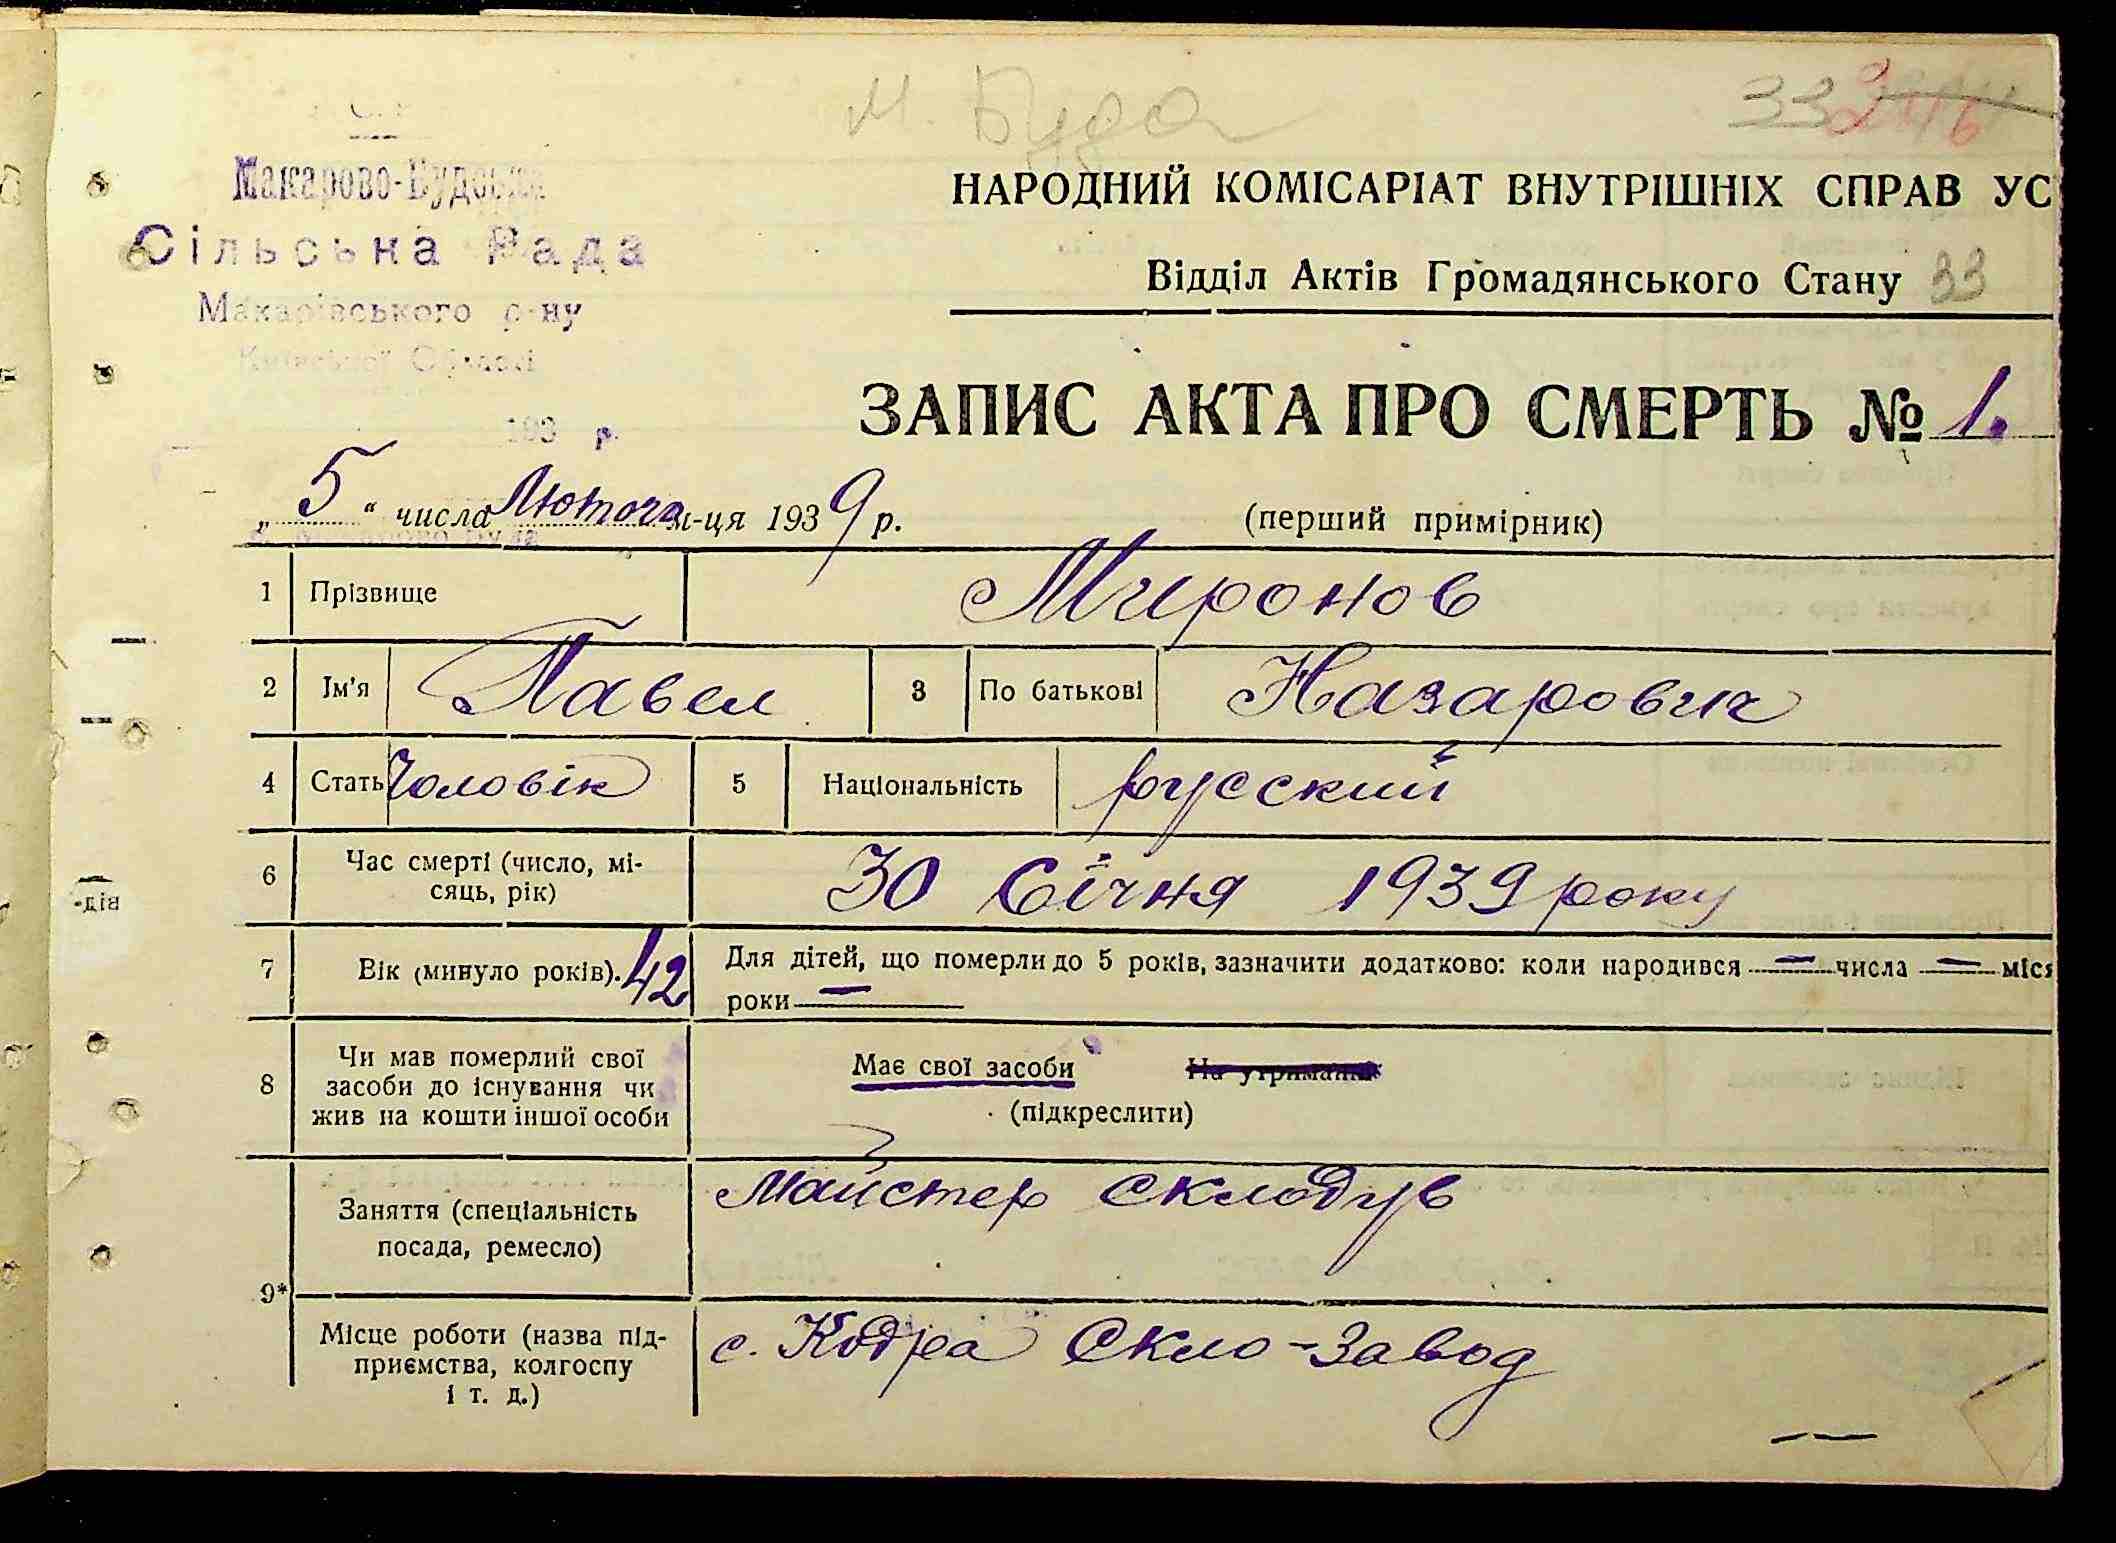 М. Буда
33
Макарово-Будська
Сільська Рада
Макарівського р-ну
Київської Області
193 р.
НАРОДНИЙ КОМІСАРІАТ ВНУТРІШНІХ СПРАВ УС
Відділ Актів Громадянського Стану 33
ЗАПИС АКТА ПРО СМЕРТЬ № 1.
„5“ числа Лютого м-ця 1939 р.
(перший примірник)
1 Прізвище Миронов
2 Ім'я Павел 3 По батькові Назарович
4 Стать Чоловік 5 Національність русский
6 Час смерті (число, мі-
сяць, рік) 30 Січня 1939 року
7 Вік (минуло років). 42 Для дітей, що померли до 5 років, зазначити додатково: коли народився — числа — міся
роки —
8 Чи мав померлий свої
засоби до існування чи
жив на кошти іншої особи
Має свої засоби На утриманні
(підкреслити)
Заняття (спеціальність
посада, ремесло)
Майстер склодув
9*
Місце роботи (назва під-
приємства, колгоспу
і т. д.)
с. Кодра Скло-Завод
-дія